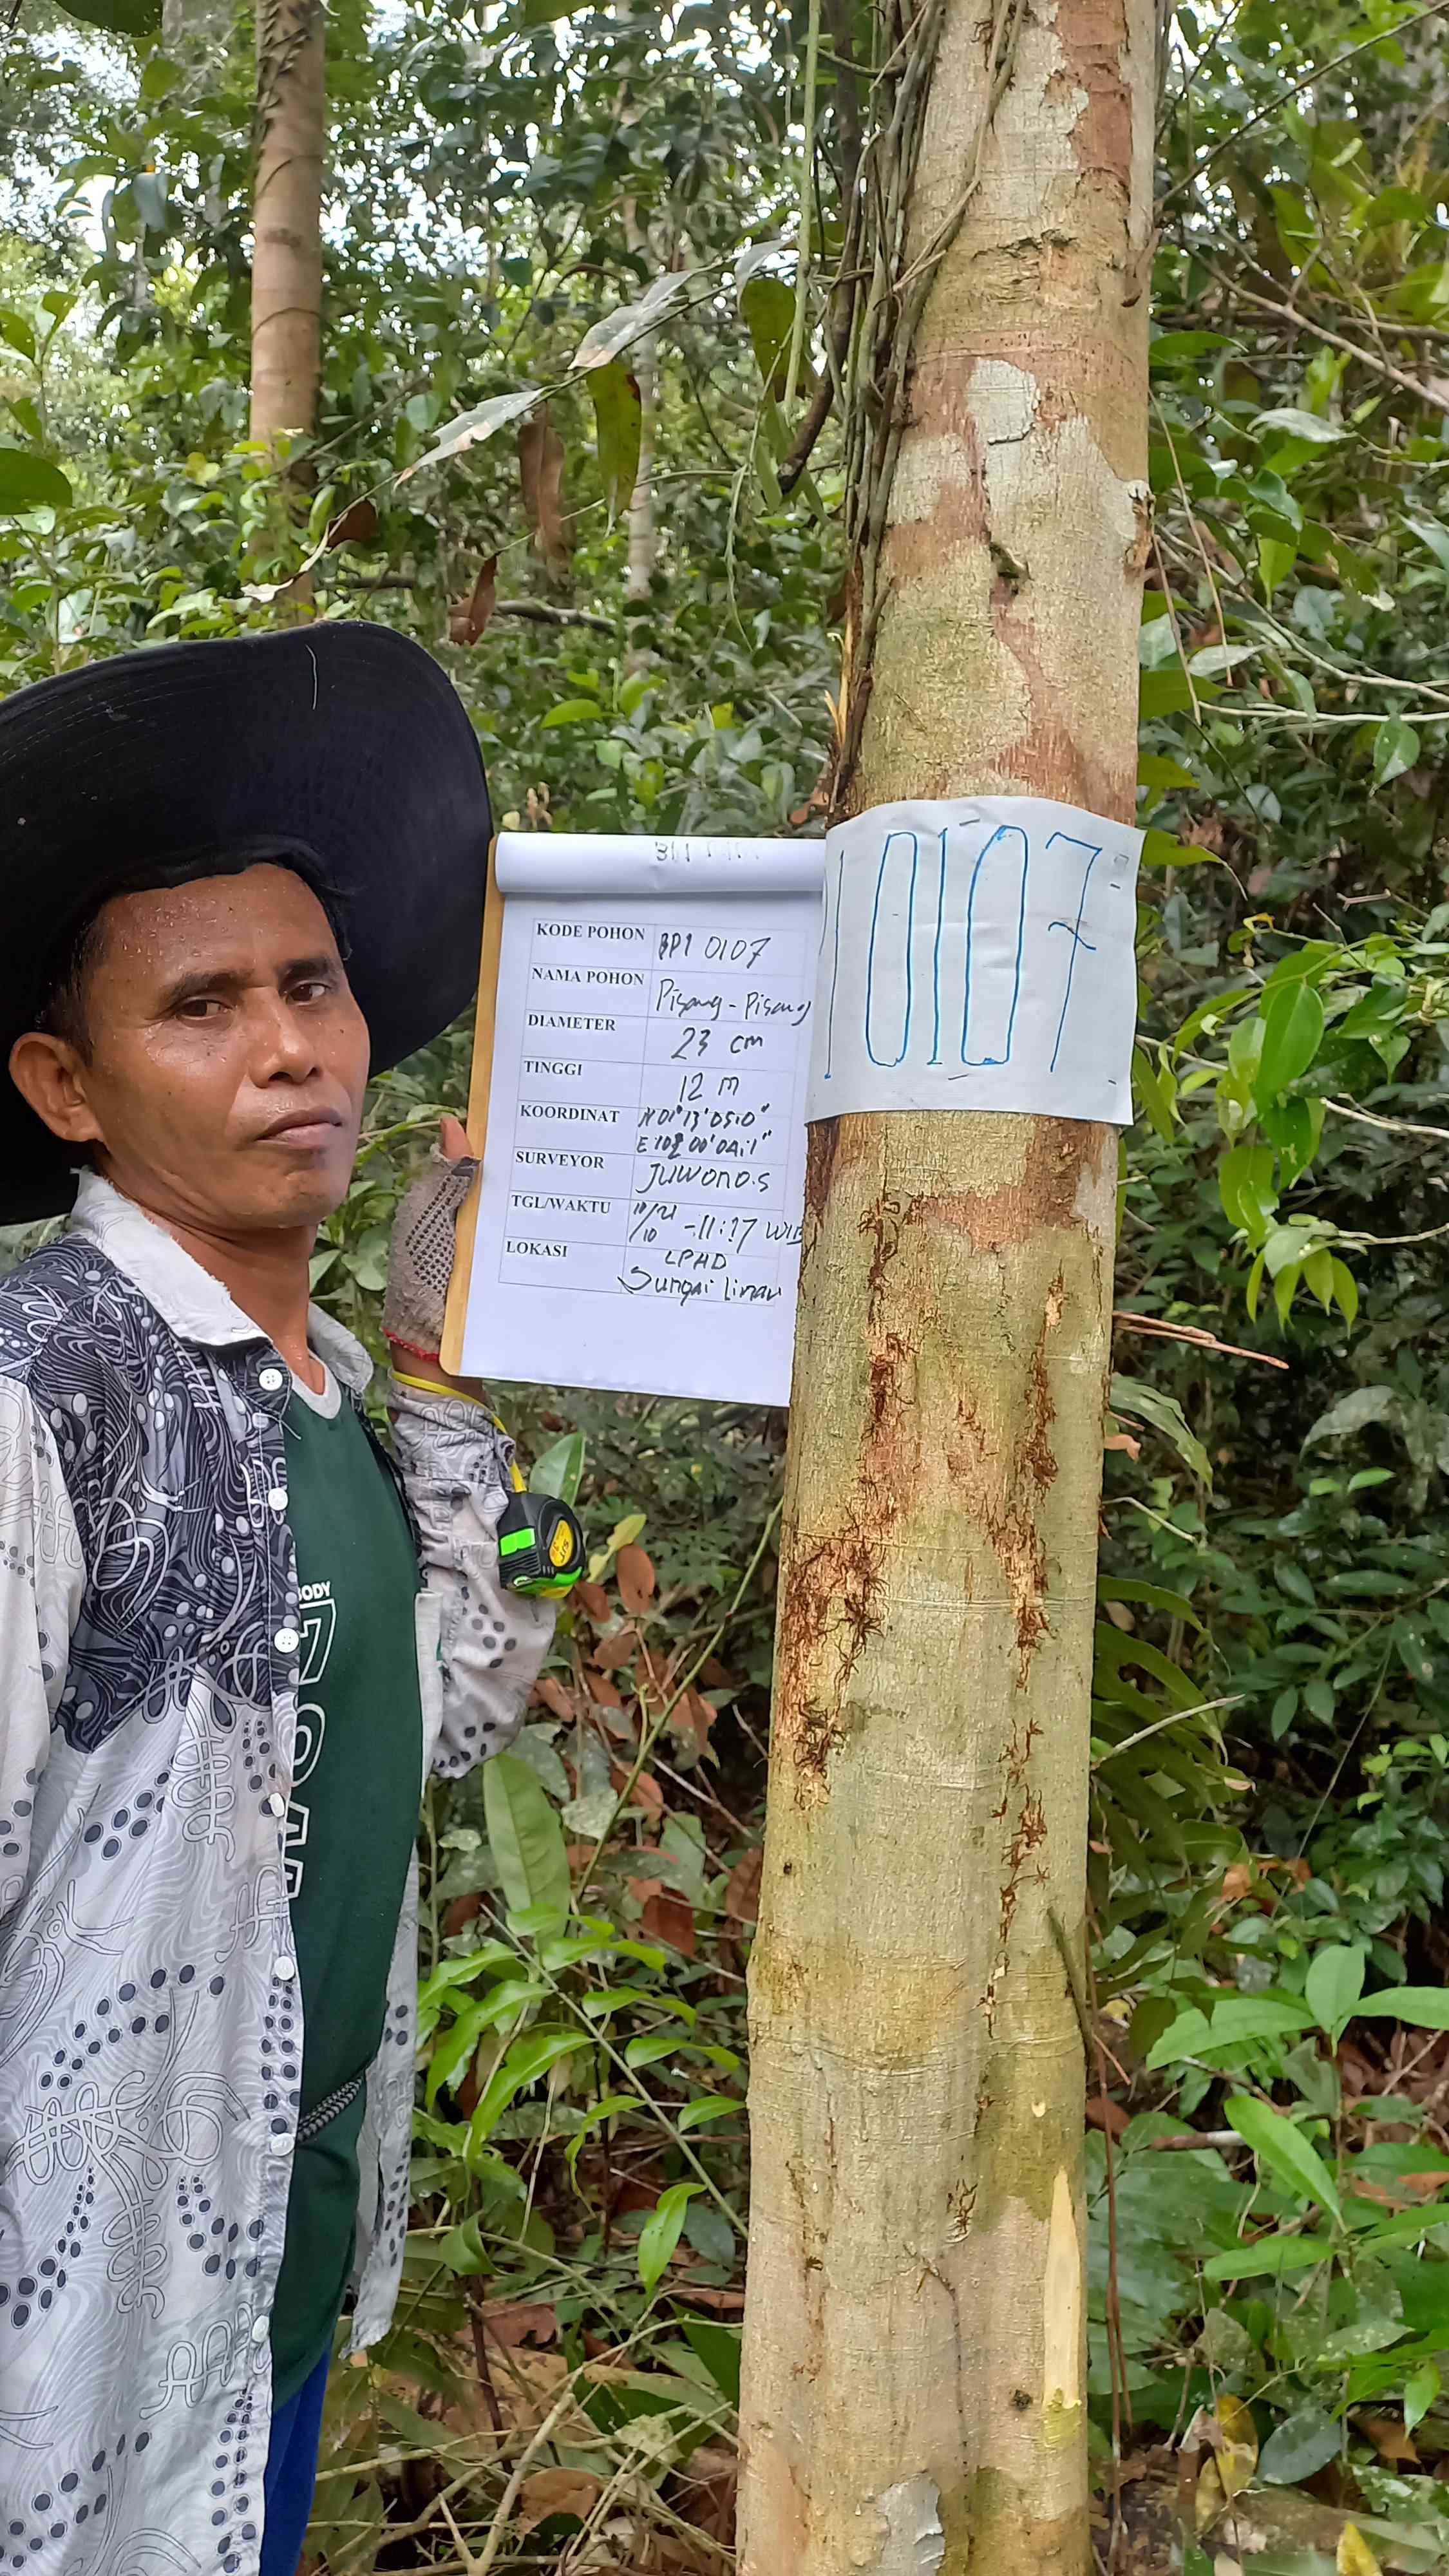 KODE POHON BP1 0107
NAMA POHON Pisang - Pisang
DIAMETER 23 cm
TINGGI 12 m
KOORDINAT N 01° 13' 05.0"
E 108 00' 04.1"
SURVEYOR JUWONO.S
TGL/WAKTU 10/21
/10 - 11:17 WIB
LOKASI LPHD
Sungai Limau
10107
BODY